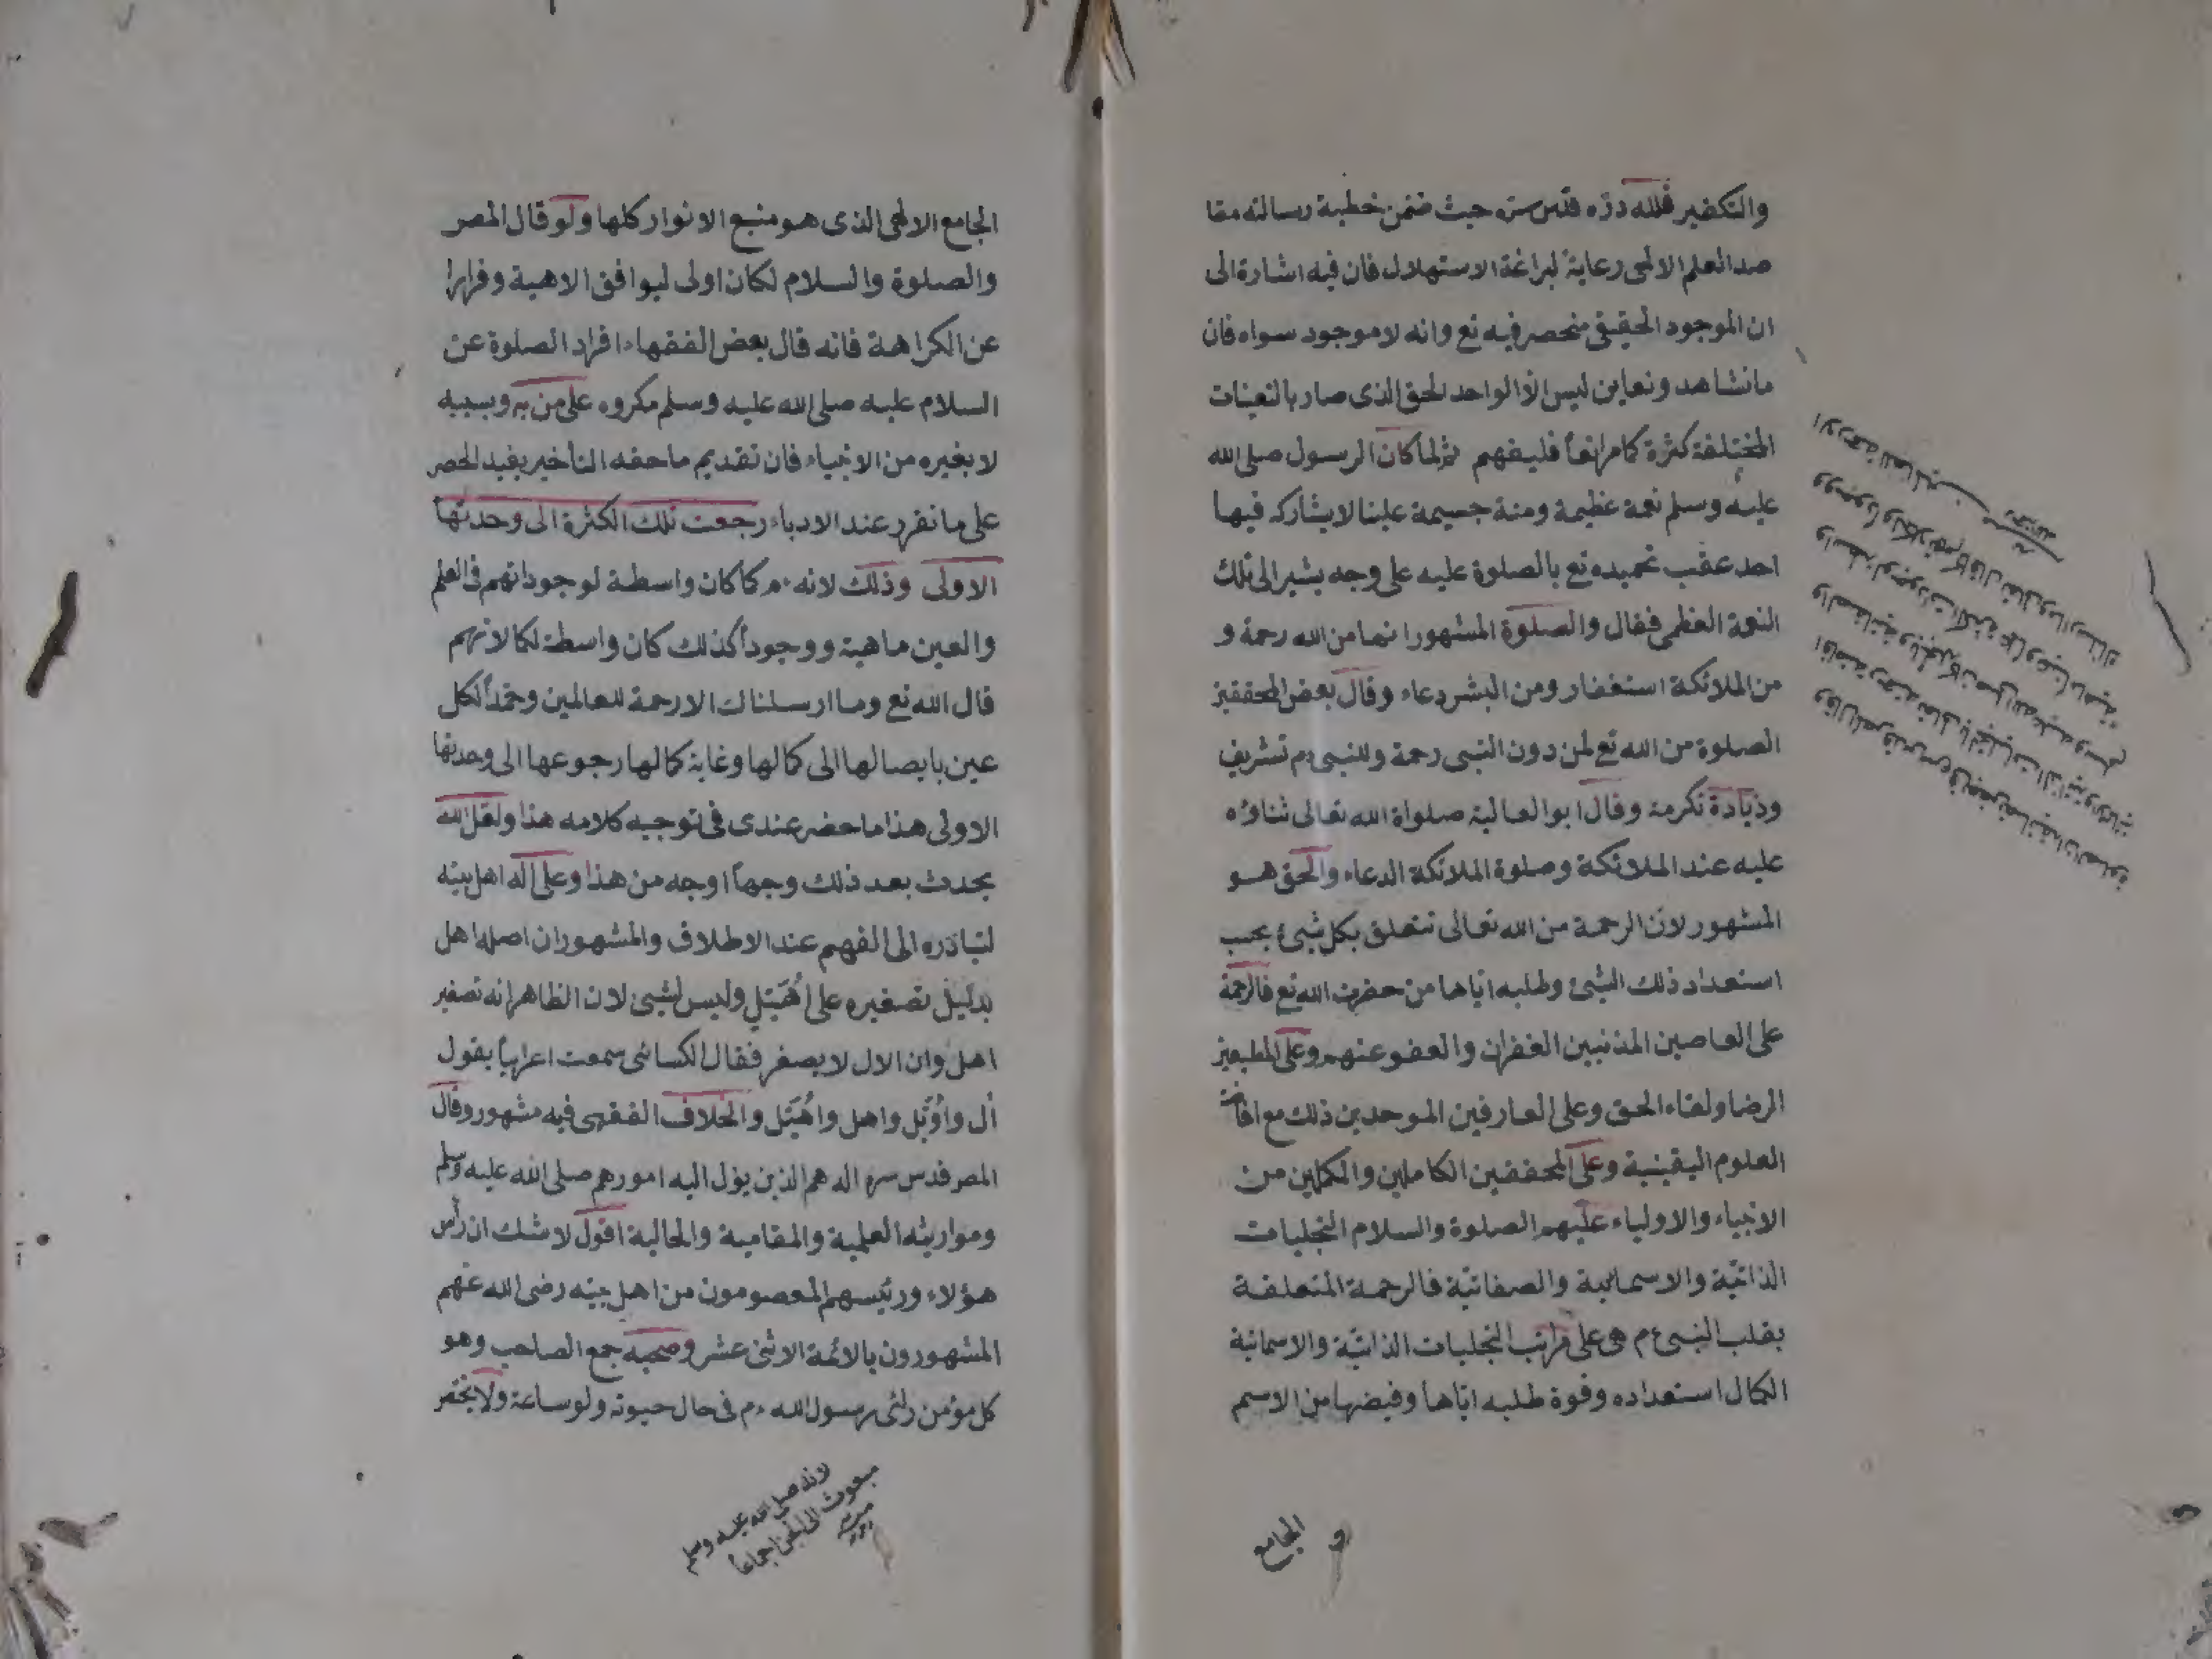 والتكفير فلله دره قدس سره حيث ضمن خطبة رسالته مقا
صد العلم الالهى رعاية لبراعة الاستهلال فان فيه اشارة الى
ان الموجود الحقيقى منحصر فيه تع وانه لا موجود سواه فان
ما نشاهد ونعاين ليس الا الواحد الحق الذى صار بالتعينات
المختلفة كثرة كما مر انفاً فليفهم ثم لما كان الرسول صلى الله
عليه وسلم نعمة عظيمة ومنة جسيمة علينا لا يشاركه فيها
احد عقب تحميده تع بالصلوة عليه على وجه يشير الى تلك
النعمة العظمى فقال والصلوة المشهور انها من الله رحمة و
من الملائكة استغفار ومن البشر دعاء وقال بعض المحققين
الصلوة من الله تع لمن دون النبى رحمة وللنبى ءم تشريف
وزيادة تكرمة وقال ابو العالية صلواة الله تعالى ثناؤه
عليه عند الملائكة وصلوة الملائكة الدعاء والحق هو
المشهور لان الرحمة من الله تعالى تتعلق بكل شىء بحسب
استعداد ذلك الشئ وطلبه اياها من حضرت الله تع فالرحمة
على العاصين المذنبين الغفران والعفو عنهم وعلى المطيعين
الرضا ولقاء الحق وعلى العارفين الموحدين ذلك مع افاضة
العلوم اليقينية وعلى المحققين الكاملين والمكملين من
الانبياء والاولياء عليهم الصلوة والسلام التجليات
الذاتية والاسمائية والصفاتية فالرحمة المتعلقة
بقلب النبى ءم هى على مراتب التجليات الذاتية والاسمائية
لكمال استعداده وقوة طلبه اياها وفيضها من الاسم
الجامع
وقال المص قدس سره فى بعض تصانيفه ان الصلوة
الا رحمة للعالمين
الجامع الالهى الذى هو منبع الانوار كلها ولو قال المص
والصلوة والسلام لكان اولى ليوافق الاهية وفرارا
عن الكراهة فانه قال بعض الفقهاء افراد الصلوة عن
السلام عليه صلى الله عليه وسلم مكروه على من به وبسببه
لا بغيره من الانبياء فان تقديم ما حقه التأخير يفيد الحصر
على ما تقرر عند الادباء رجعت تلك الكثرة الى وحدتها
الاولى وذلك لانه ءم كما كان واسطة لوجوداتهم فى العلم
والعين ماهية ووجوداً كذلك كان واسطة لكمالاتهم
قال الله تع وما ارسلناك الا رحمة للعالمين وحمداً لكل
عين بايصالها الى كمالها وغاية كمالها رجوعها الى وحدتها
الاولى هذا ما حضر عندى فى توجيه كلامه هذا ولعل الله
يحدث بعد ذلك وجهاً اوجه من هذا وعلى اله اهل بيته
لتبادره الى الفهم عند الاطلاق والمشهور ان اصله اهل
بدليل تصغيره على اُهَيْلٍ وليس بشىء لان الظاهر انه تصغير
اهل وان الال لا يصغر فقال الكسائى سمعت اعرابياً يقول
أل واُوَيل واهل واُهَيل والخلاف الفقهى فيه مشهور وقال
المص قدس سره اله هم الذين يؤل اليه امورهم صلى الله عليه وسلم
ومواريثه العلمية والمقامية والحالية اقول لا شك ان رأس
هؤلاء ورئيسهم المعصومون من اهل بيته رضى الله عنهم
المشهورون بالائمة الاثنى عشر وصحبه جمع الصاحب وهو
كل مؤمن رائى رسول الله ءم فى حال حيوته ولو ساعة ولا يختص
لانه صلى الله عليه وسلم
مبعوث الى الجن اجماعا